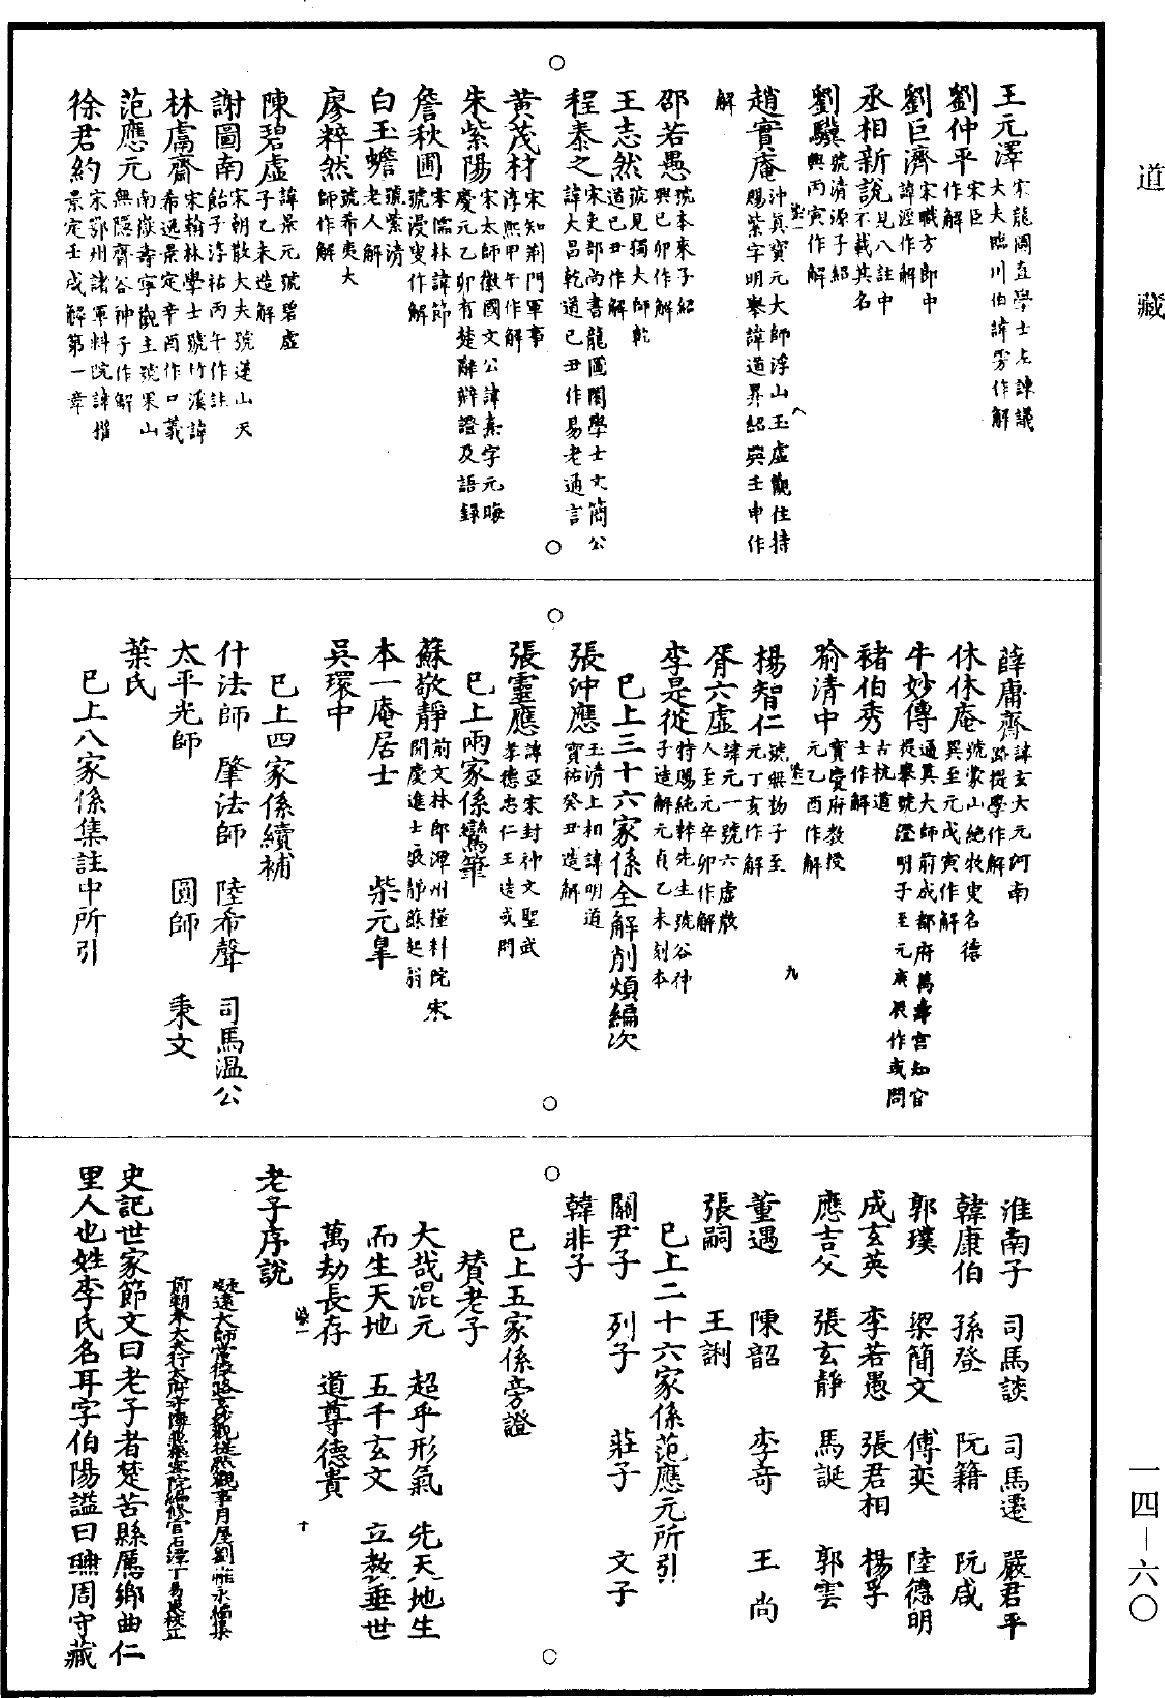 道藏
王元澤 宋龍圖直學士左諫議
大夫臨川伯諱雱作解
劉仲平 宋臣
作解
劉巨濟 宋職方郎中
諱涇作解
丞相新說 見八註中
不載其名
劉驥 號清源子紹
興丙寅作解
趙實庵 沖真寶元大師浮山玉虛觀住持
賜紫字明舉諱道昇紹興壬申作
解
邵若愚 號本來子紹
興己卯作解
王志然 號見獨大師乾
道己丑作解
程泰之 宋吏部尚書龍圖閣學士文簡公
諱大昌乾道己丑作易老通言
黃茂材 宋知荆門軍事
淳熙甲午作解
朱紫陽 宋太師徽國文公諱熹字元晦
慶元乙卯有楚辭辨證及語錄
詹秋圃 宋儒林諱節
號漫叟作解
白玉蟾 號紫清
老人解
廖粹然 號希夷大
師作解
陳碧虛 諱景元號碧虛
子乙未造解
謝圖南 宋朝散大夫號蓬山天
飴子淳祐丙午作註
林鬳齋 宋翰林學士號竹溪諱
希逸景定辛酉作口義
范應元 南嶽壽寧觀主號果山
無隱齋谷神子作解
徐君約 宋鄂州諸軍料院諱揩
景定壬戌解第一章
薛庸齋 諱玄大元河南
路提學作解
休休庵 號蒙山絶牧叟名德
異至元戊寅作解
牛妙傳 通真大師前成都府萬壽宮知宮
提舉號澄明子至元庚辰作或問
褚伯秀 古杭道
士作解
喻清中 寶慶府教授
元乙酉作解
楊智仁 號無物子至
元丁亥作解
胥六虛 諱元一號六虛散
人至元辛卯作解
李是從 特賜純粹先生號谷神
子造解元貞乙未刻本
已上三十六家係全解削煩編次
張沖應 玉清上相諱明道
寶祐癸丑造解
張靈應 諱亞宋封神文聖武
孝德忠仁王造或問
已上兩家係鸞筆
蘇敬靜 前文林郎潭州糧料院宋
開慶進士
本一庵居士 柴元皐
吳環中
已上四家係續補
什法師 肇法師 陸希聲 司馬溫公
太平光師 圓師 秉文
葉氏
已上八家係集註中所引
淮南子 司馬談 司馬遷 嚴君平
韓康伯 孫登 阮籍 阮咸
郭璞 梁簡文 傅奕 陸德明
成玄英 李若愚 張君相 楊孚
應吉父 張玄靜 馬誕 郭雲
董遇 陳韶 李奇 王尚
張嗣 王誗
已上二十六家係范應元所引
關尹子 列子 莊子 文子
韓非子
已上五家係旁證
贊老子
大哉混元 超乎形氣 先天地生
而生天地 五千玄文 立教垂世
萬劫長存 道尊德貴
十
老子序說
凝遠大師常德路玄妙觀提點觀事月屋劉惟永編集
前朝奉大夫行太府寺簿兼樞密院編修官石潭丁易東校正
史記世家節文曰老子者楚苦縣厲鄉曲仁
里人也姓李氏名耳字伯陽謚曰聃周守藏
一四—六〇